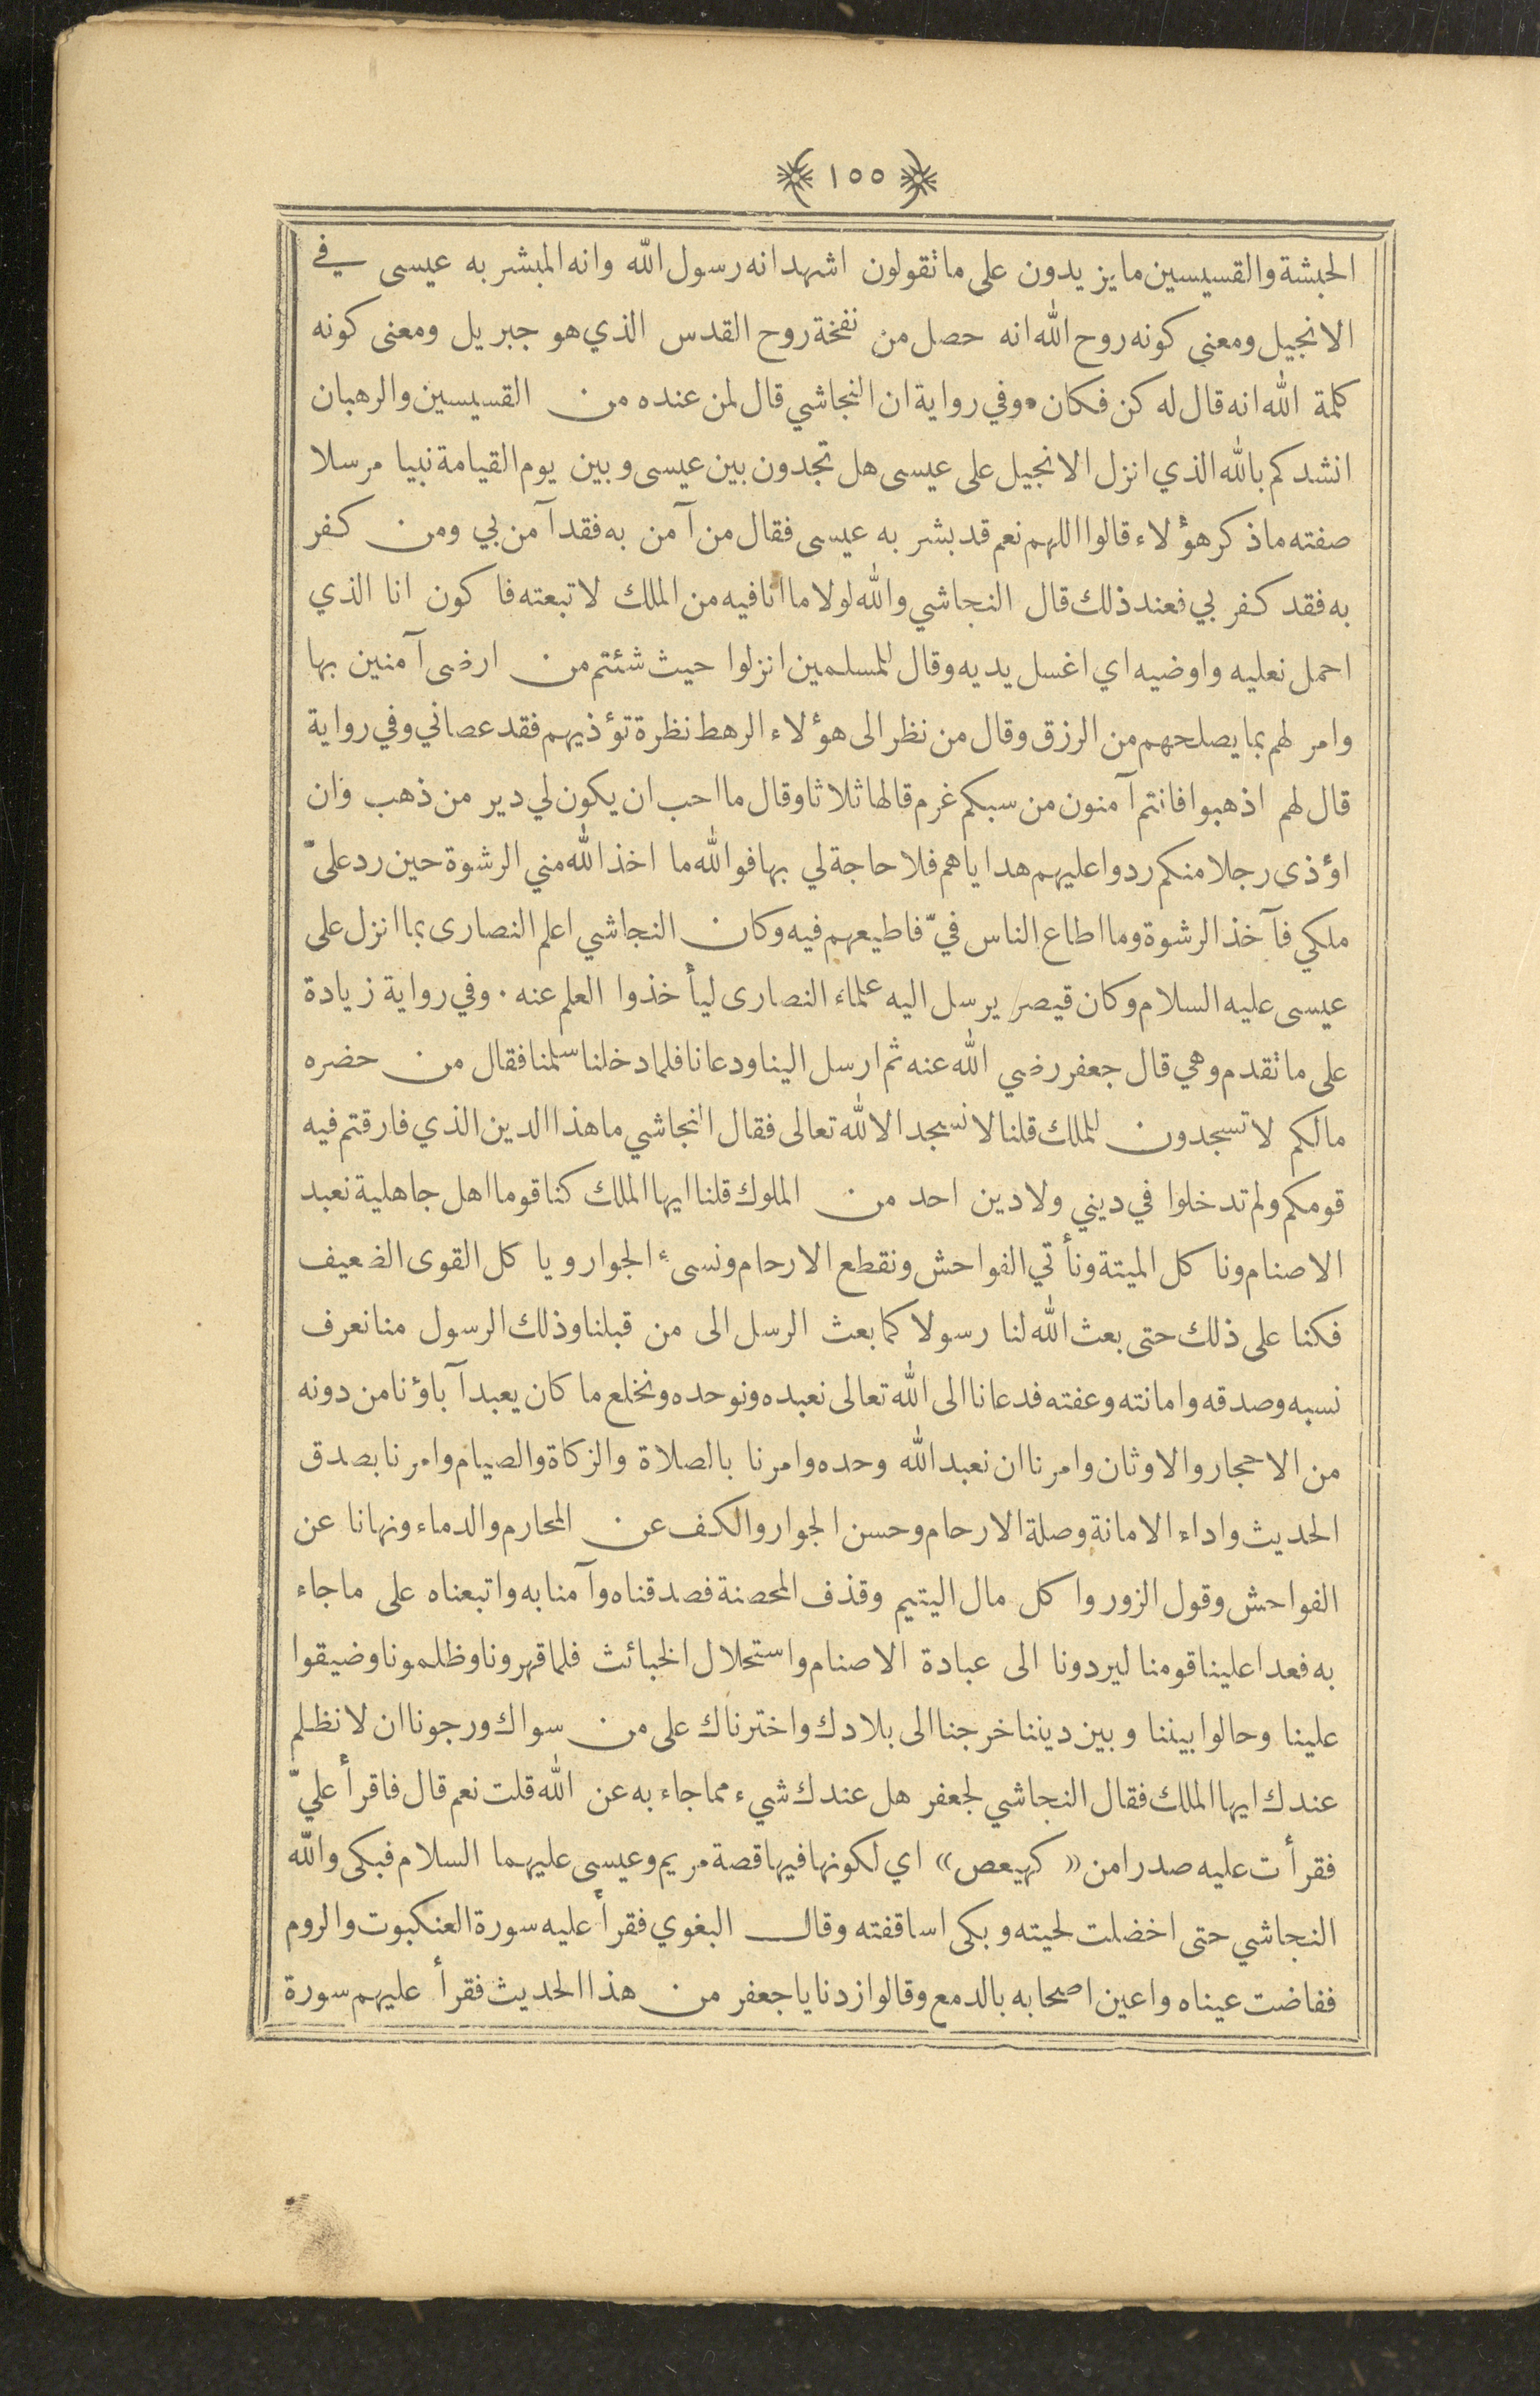 ١٥٥
الحبشة والقسيسين ما يزيدون على ما تقولون اشهد انه رسول الله وانه المبشر به عيسى في
الانجيل ومعنى كونه روح الله انه حصل من نفخة روح القدس الذي هو جبريل ومعنى كونه
كلمة الله انه قال له كن فكان٠وفي رواية ان النجاشي قال لمن عنده من القسيسين والرهبان
انشدكم بالله الذي انزل الانجيل على عيسى هل تجدون بين عيسى وبين يوم القيامة نبيا مرسلا
صفته ما ذكر هؤلاء قالوا اللهم نعم قد بشر به عيسى فقال من آمن به فقد آمن بي ومن كفر
به فقد كفر بي فعند ذلك قال النجاشي والله لولا ما انا فيه من الملك لاتبعته فاكون انا الذي
احمل نعليه واوضيه اي اغسل يديه وقال للمسلمين انزلوا حيث شئتم من ارضى آمنين بها
وامر لهم بما يصلحهم من الرزق وقال من نظر الى هؤلاء الرهط نظرة تؤذيهم فقد عصاني وفي رواية
قال لهم اذهبوا فانتم آمنون من سبكم غرم قالها ثلاثا وقال ما احب ان يكون لي دير من ذهب وان
اؤذى رجلا منكم ردوا عليهم هداياهم فلا حاجة لي بها فوالله ما اخذ الله مني الرشوة حين رد عليّ
ملكي فآخذ الرشوة وما اطاع الناس فيّ فاطيعهم فيه وكان النجاشي اعلم النصارى بما انزل على
عيسى عليه السلام وكان قيصر يرسل اليه علماء النصارى ليأخذوا العلم عنه ٠ وفي رواية زيادة
على ما تقدم وهي قال جعفر رضي الله عنه ثم ارسل الينا ودعانا فلما دخلنا سلمنا فقال من حضره
مالكم لا تسجدون للملك قلنا لا نسجد الا لله تعالى فقال النجاشي ما هذا الدين الذي فارقتم فيه
قومكم ولم تدخلوا في ديني ولا دين احد من الملوك قلنا ايها الملك كنا قوما اهل جاهلية نعبد
الاصنام وناكل الميتة ونأتي الفواحش ونقطع الارحام ونسىء الجوار وياكل القوى الضعيف
فكنا على ذلك حتى بعث الله لنا رسولا كما بعث الرسل الى من قبلنا وذلك الرسول منا نعرف
نسبه وصدقه وامانته وعفته فدعانا الى الله تعالى نعبده ونوحده ونخلع ما كان يعبد آباؤنا من دونه
من الاحجار والاوثان وامرنا ان نعبد الله وحده وامرنا بالصلاة والزكاة والصيام وامرنا بصدق
الحديث واداء الامانة وصلة الارحام وحسن الجوار والكف عن المحارم والدماء ونهانا عن
الفواحش وقول الزور واكل مال اليتيم وقذف المحصنة فصدقناه وآمنا به واتبعناه على ما جاء
به فعدا علينا قومنا ليردونا الى عبادة الاصنام واستحلال الخبائث فلما قهرونا وظلمونا وضيقوا
علينا وحالوا بيننا وبين ديننا خرجنا الى بلادك واخترناك على من سواك ورجونا ان لا نظلم
عندك ايها الملك فقال النجاشي لجعفر هل عندك شيء مما جاء به عن الله قلت نعم قال فاقرأ عليّ
فقرأت عليه صدرا من « كهيعص » اي لكونها فيها قصة مريم وعيسى عليهما السلام فبكى والله
النجاشي حتى اخضلت لحيته وبكى اساقفته وقال البغوي فقرأ عليه سورة العنكبوت والروم
ففاضت عيناه واعين اصحابه بالدمع وقالوا زدنا يا جعفر من هذا الحديث فقرأ عليهم سورة